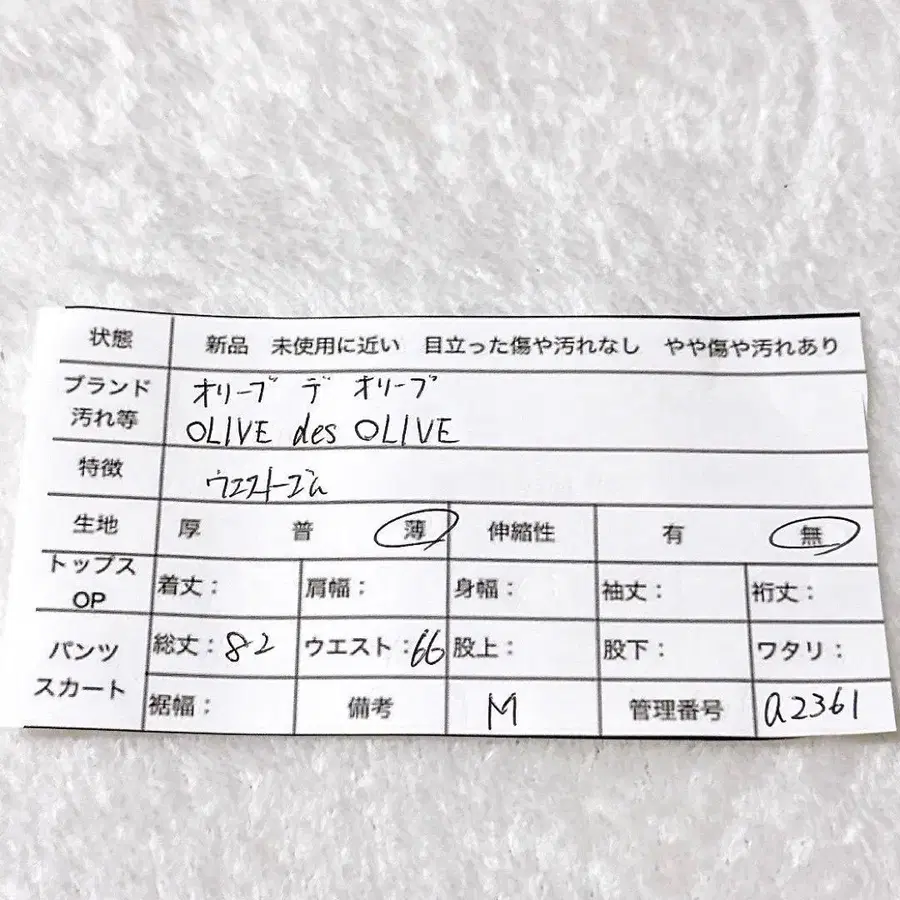 状態 新品 未使用に近い 目立った傷や汚れなし やや傷や汚れあり
ブランド オリーブ デ オリーブ
汚れ等 OLIVE des OLIVE
特徴 ウエストゴム
生地 厚 普 薄 伸縮性 有 無
トップス
OP 着丈: 肩幅: 身幅: 袖丈: 裄丈:
パンツ 総丈:82 ウエスト:66 股上: 股下: ワタリ:
スカート 裾幅: 備考 M 管理番号 a2361